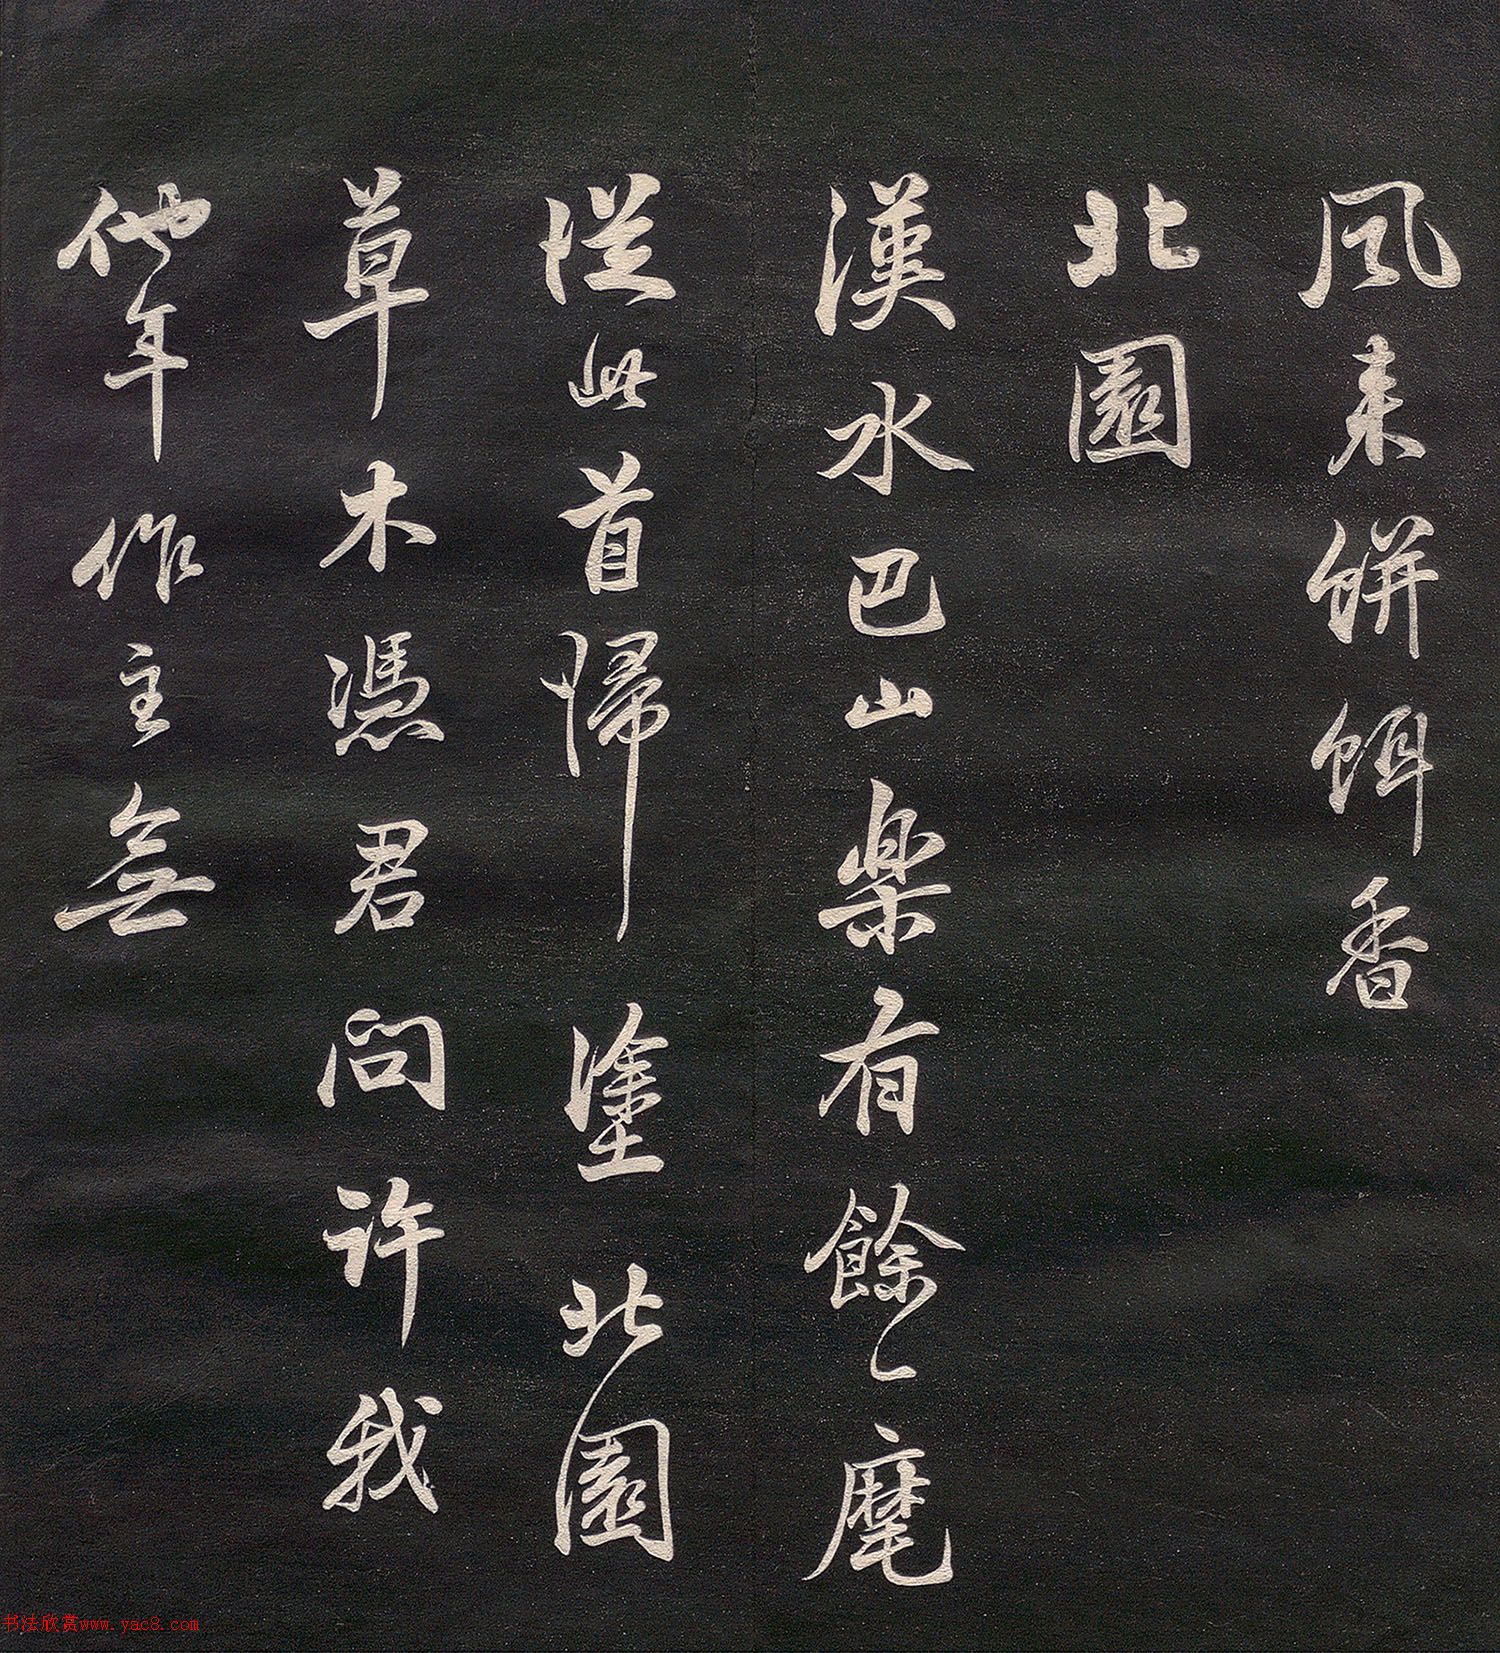 風来餅餌香
北園
漢水巴山樂有餘一麾
從此首歸塗北園
草木憑君問許我
他年作主無
书法欣赏www.yac8.com